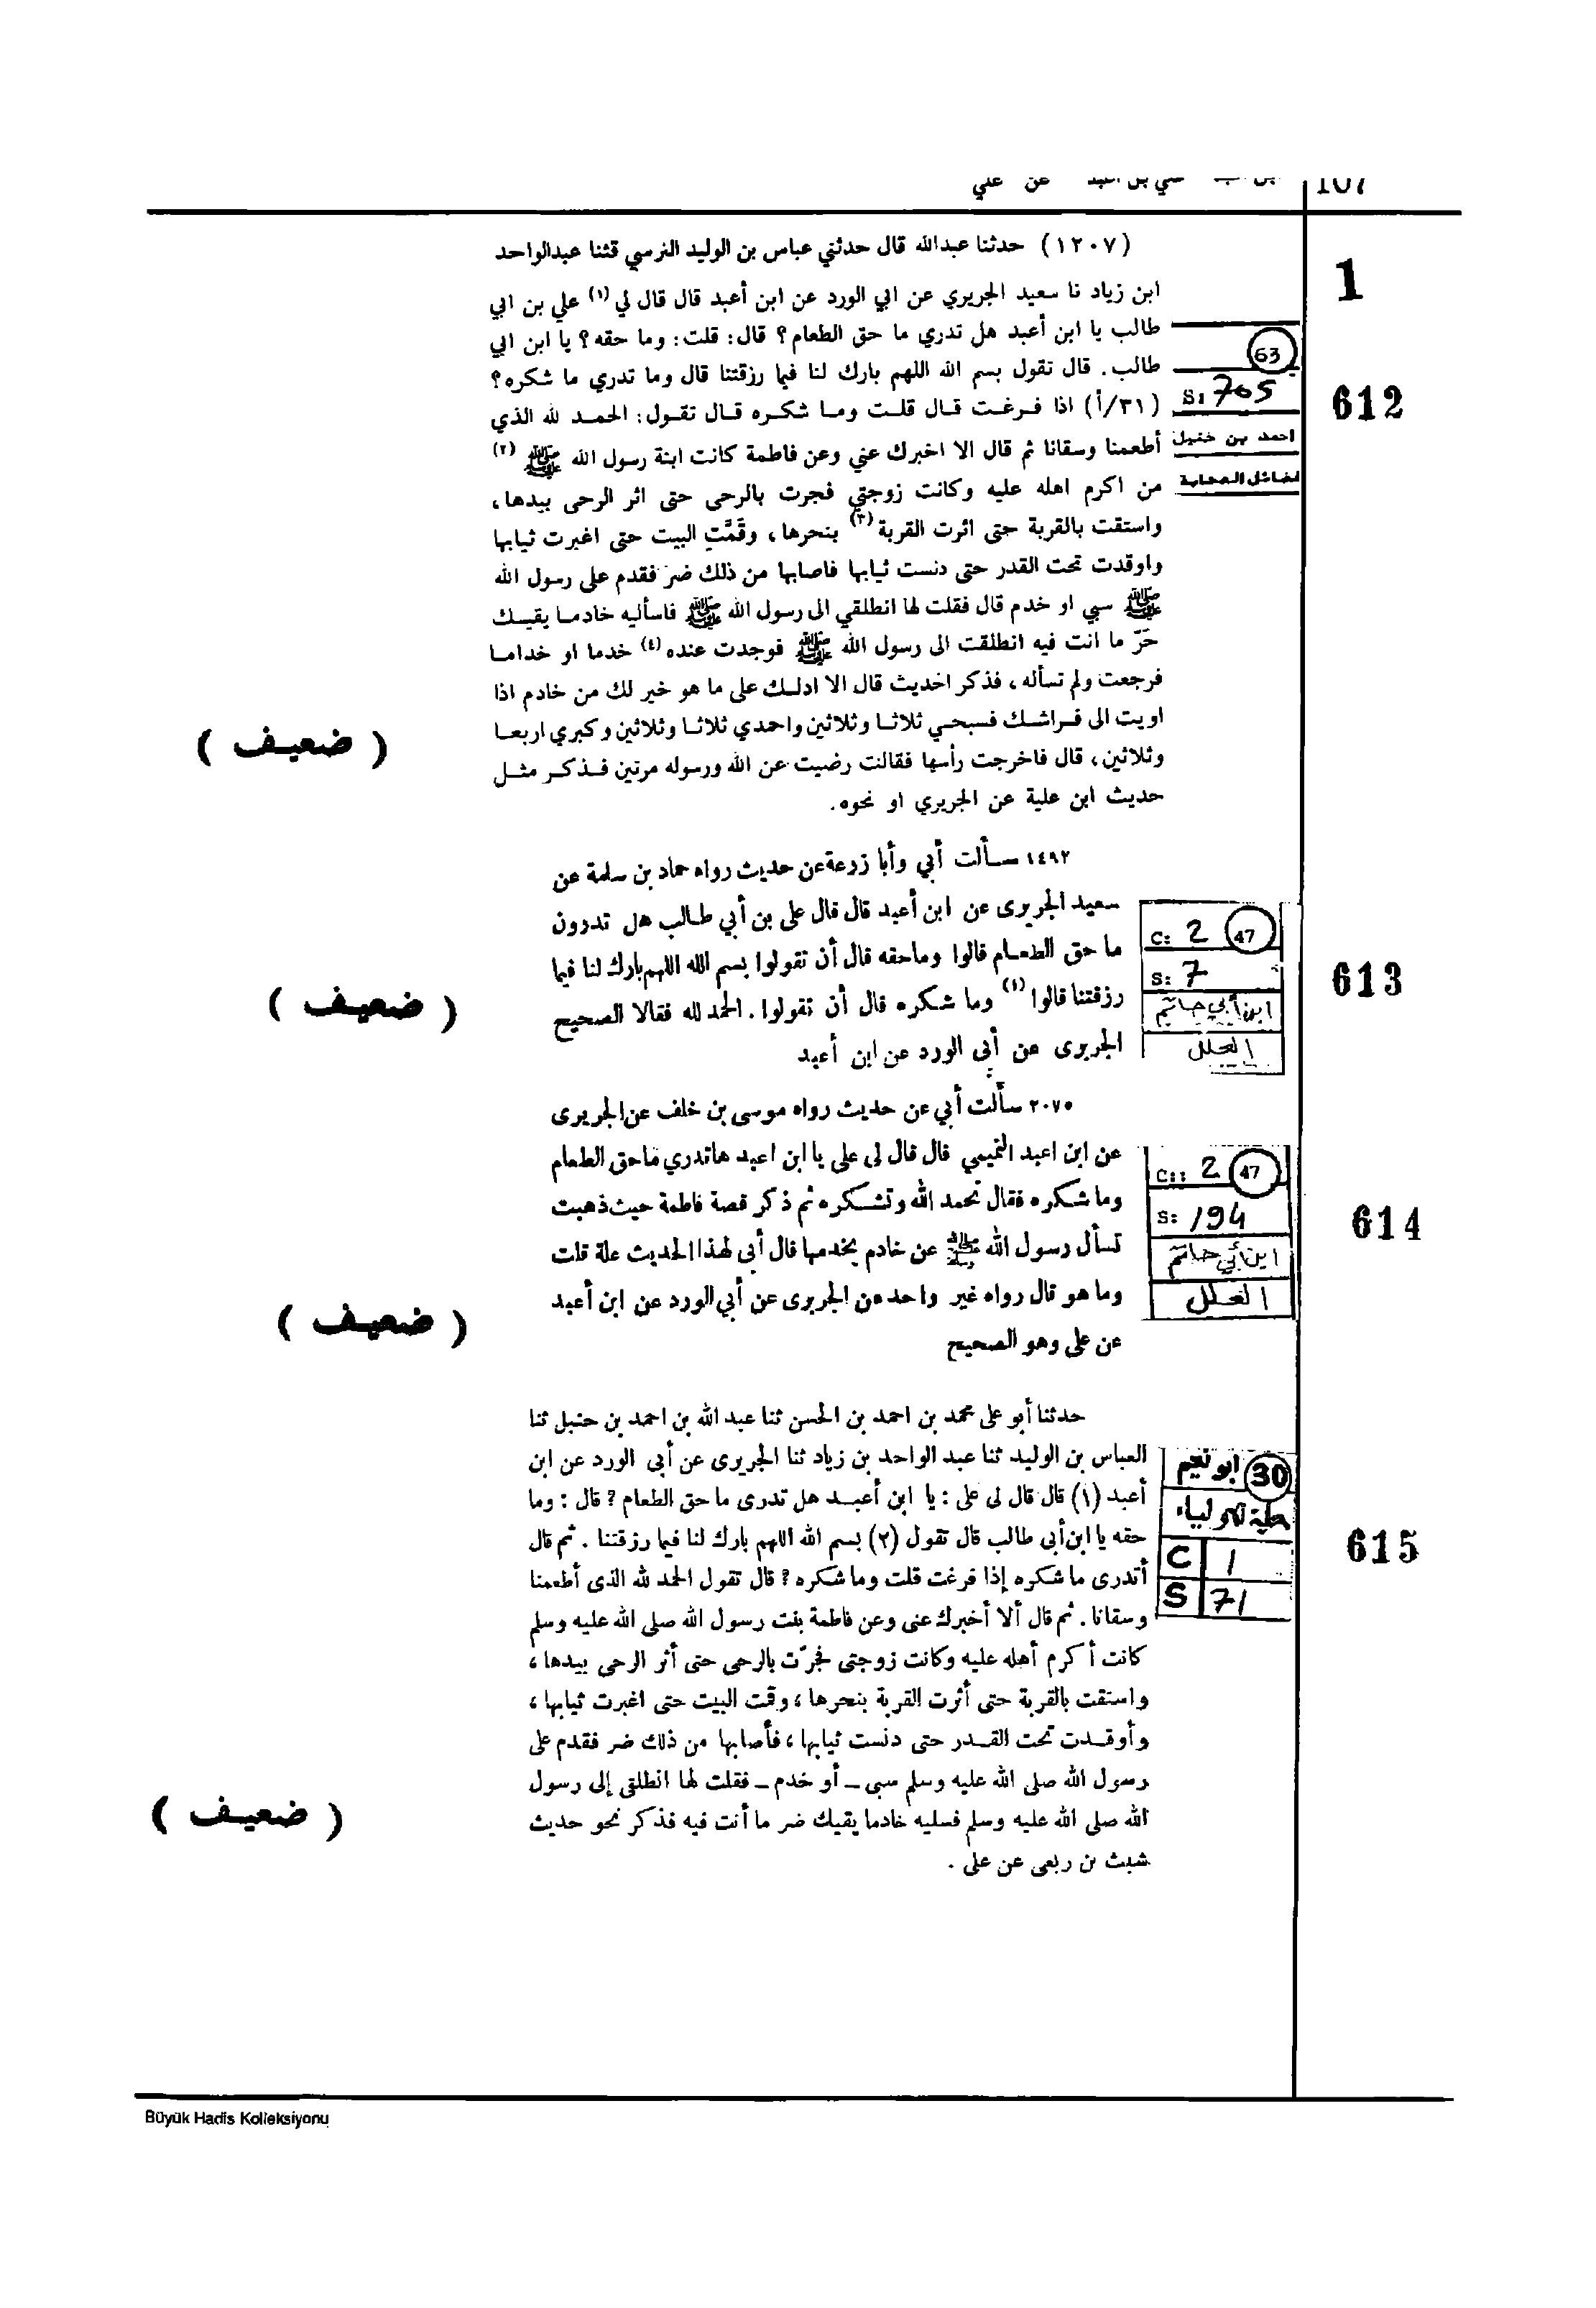 عن علي
107
1
(١٢٠٧) حدثنا عبدالله قال حدثني عباس بن الوليد النرسي قثنا عبدالواحد
ابن زياد نا سعيد الجريري عن ابي الورد عن ابن أعبد قال قال لي (١) علي بن ابي
طالب يا ابن أعبد هل تدري ما حق الطعام؟ قال: قلت: وما حقه؟ يا ابن ابي
طالب. قال تقول بسم الله اللهم بارك لنا فيما رزقتنا قال وما تدري ما شكره؟
(٣١/أ) اذا فرغت قال قلت وما شكره قال تقول: الحمد لله الذي
أطعمنا وسقانا ثم قال الا اخبرك عني وعن فاطمة كانت ابنة رسول الله ﷺ (٢)
من اكرم اهله عليه وكانت زوجتي فجرت بالرحى حتى اثر الرحى بيدها،
واستقت بالقربة حتى اثرت القربة (٣) بنحرها، وقَمَّتِ البيت حتى اغبرت ثيابها
واوقدت تحت القدر حتى دنست ثيابها فاصابها من ذلك ضر فقدم على رسول الله
ﷺ سبي او خدم قال فقلت لها انطلقي الى رسول الله ﷺ فاسأليه خادما يقيك
حَرّ ما انت فيه انطلقت الى رسول الله ﷺ فوجدت عنده (٤) خدما او خداما
فرجعت ولم تسأله، فذكر الحديث قال الا ادلك على ما هو خير لك من خادم اذا
اويت الى فراشك فسبحي ثلاثا وثلاثين واحمدي ثلاثا وثلاثين وكبري اربعا
وثلاثين، قال فاخرجت رأسها فقالت رضيت عن الله ورسوله مرتين فذكر مثل
حديث ابن علية عن الجريري او نحوه.
63
S: 705
احمد بن حنبل
فضائل الصحابة
612
( ضعيف )
١٤٩٢ سألت أبي وأبا زرعة عن حديث رواه حماد بن سلمة عن
سعيد الجريرى عن ابن أعبد قال قال على بن أبي طالب هل تدرون
ما حق الطعام قالوا وماحقه قال أن تقولوا بسم الله اللهم بارك لنا فيما
رزقتنا قالوا (١) وما شكره قال أن تقولوا. الحمد لله فقالا الصحيح
الجريرى عن أبى الورد عن ابن أعبد
C: 2 47
S: 7
ابن أبي حاتم
العلل
613
( ضعيف )
٢٠٧٥ سألت أبي عن حديث رواه موسى بن خلف عن الجريرى
عن ابن اعبد التميمي قال قال لى على يا ابن اعبد هاتدري ماحق الطعام
وما شكره فقال تحمد الله وتشكره ثم ذكر قصة فاطمة حيث ذهبت
تسأل رسول الله ﷺ عن خادم يخدمها قال أبى لهذا الحديث علة قلت
وما هو قال رواه غير واحد عن الجريرى عن أبي الورد عن ابن أعبد
عن على وهو الصحيح
C: 2 47
S: 194
ابن أبي حاتم
العلل
614
( ضعيف )
حدثنا أبو على محمد بن احمد بن الحسن ثنا عبد الله بن احمد بن حنبل ثنا
العباس بن الوليد ثنا عبد الواحد بن زياد ثنا الجريرى عن أبى الورد عن ابن
أعبد (١) قال قال لى على: يا ابن أعبد هل تدرى ما حق الطعام؟ قال: وما
حقه يا ابن أبى طالب قال تقول (٢) بسم الله اللهم بارك لنا فيما رزقتنا. ثم قال
أتدرى ما شكره إذا فرغت قلت وما شكره؟ قال تقول الحمد لله الذى أطعمنا
وسقانا. ثم قال ألا أخبرك عنى وعن فاطمة بنت رسول الله صلى الله عليه وسلم
كانت أكرم أهله عليه وكانت زوجتى فجرّت بالرحى حتى أثر الرحى بيدها،
واستقت بالقربة حتى أثرت القربة بنحرها، وقمت البيت حتى اغبرت ثيابها،
وأوقدت تحت القدر حتى دنست ثيابها، فأصابها من ذلك ضر فقدم على
رسول الله صلى الله عليه وسلم سبى ـ أو خدم ـ فقلت لها انطلقى إلى رسول
الله صلى الله عليه وسلم فسليه خادما يقيك ضر ما أنت فيه فذكر نحو حديث
شبث بن ربعى عن على.
ابو نعيم 30
حلية الاولياء
C 1
S 71
615
( ضعيف )
Büyük Hadis Kolleksiyonu